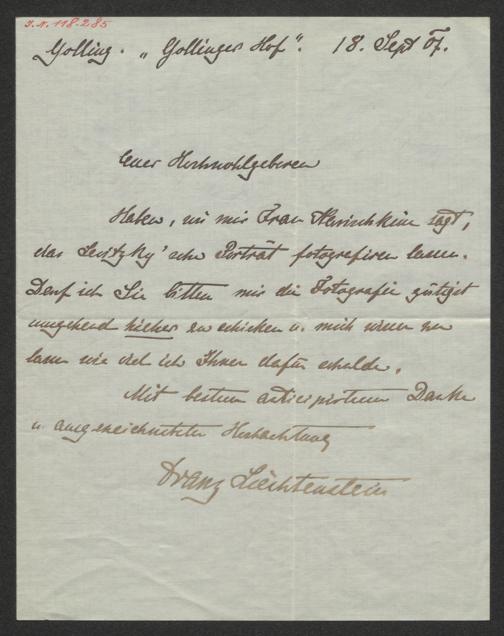 J.N. 118.285
Golling. „Gollinger Hof". 18. Sept 07.
Euer Hochwohlgeboren
Haben, wie mir Frau sagt,
das Levitzky'sche Porträt fotografiren lassen.
Darf ich Sie bitten mir die Fotografie gütigst
umgehend hieher zu schicken u. mich wissen zu
lassen wie viel ich Ihnen dafür schulde.
Mit bestem anticipirtem Danke
u. ausgezeichneter Hochachtung
Franz Liechtenstein